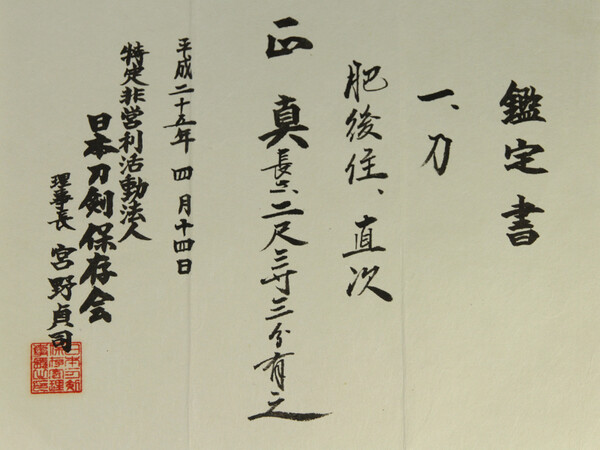 鑑定書
一、刀
肥後住、直次
正真 長サ二尺三寸三分有之
平成二十五年 四月十四日
特定非営利活動法人
日本刀剣保存会
理事長 宮野貞司